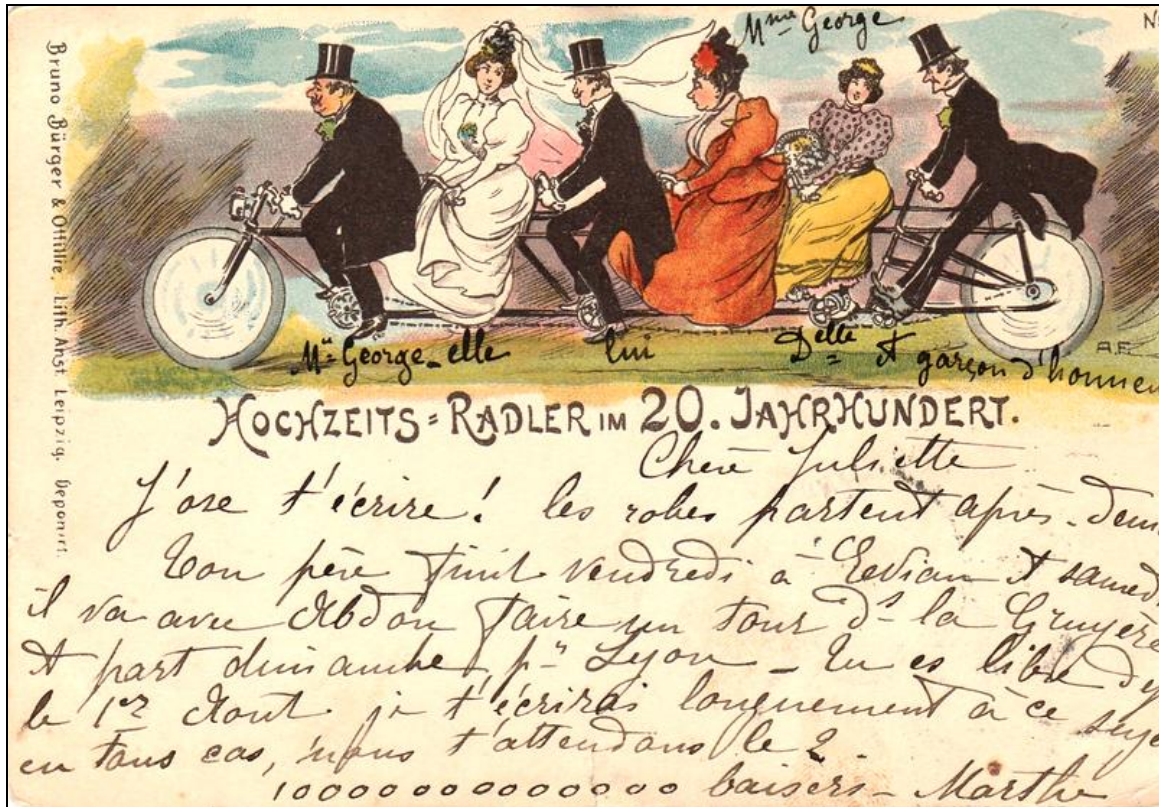 Mme George
N
Bruno Bürger & Ottillie, Lith. Anst. Leipzig. Deponirt.
Mr George - elle lui Delle et garçon d'honneu
A.F.
HOCHZEITS=RADLER IM 20. JAHRHUNDERT.
Chère Juliette
J'ose t'écrire! les robes partent après-dem
Ton père finit vendredi à Evian et samedi
il va avec Abdon faire un tour ds la Gruyère
et part dimanche pr Lyon - Tu es libre
le 1er Aout je t'écrirai longuement à ce suje
en tous cas, nous t'attendons le 2.
10000000000000 baisers - Marthe